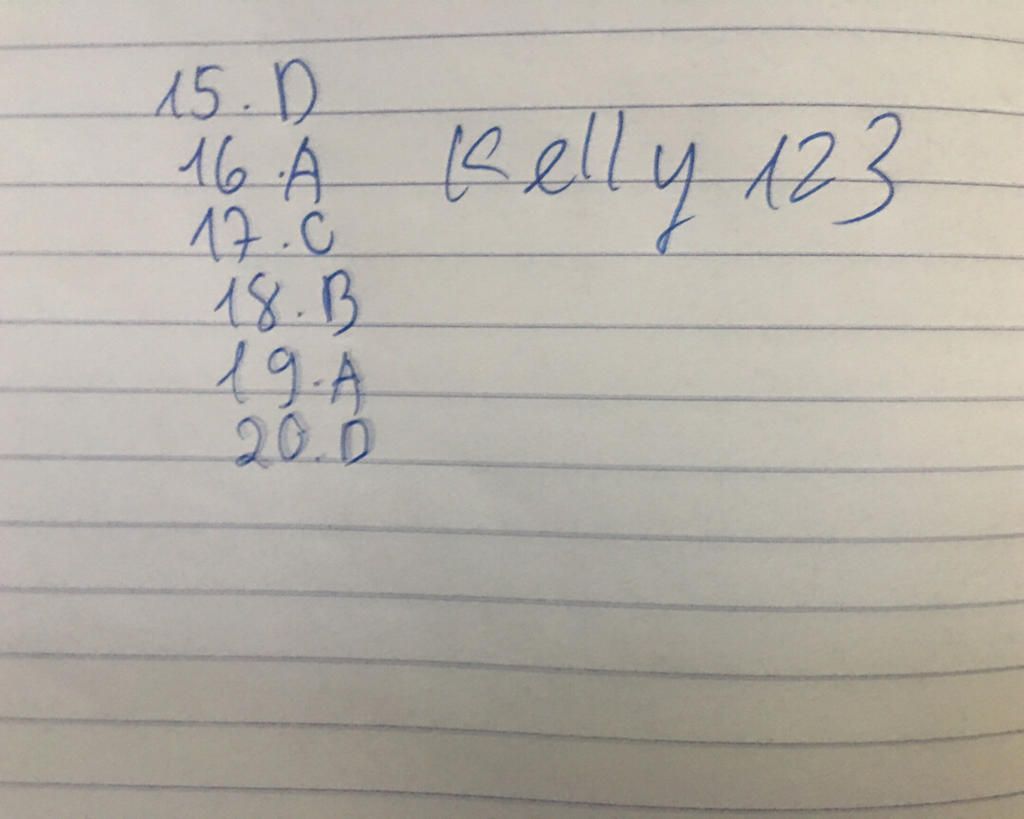 15. D
16. A
Kelly 123
17. C
18. B
19. A
20. D